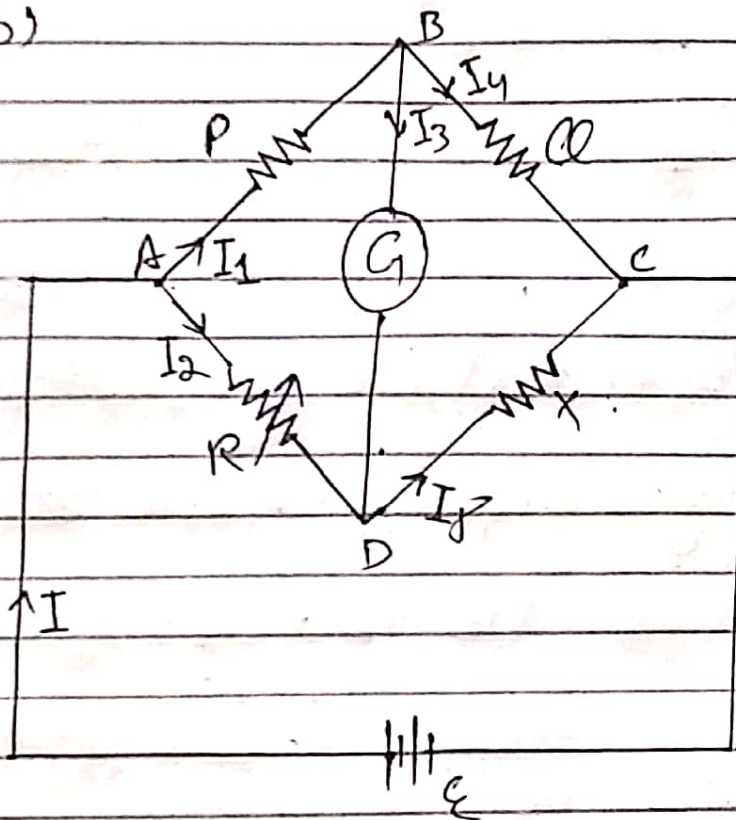 b)
B
I4
P
I3
Q
G
A
I1
C
I2
X
R
I5
D
I
ε